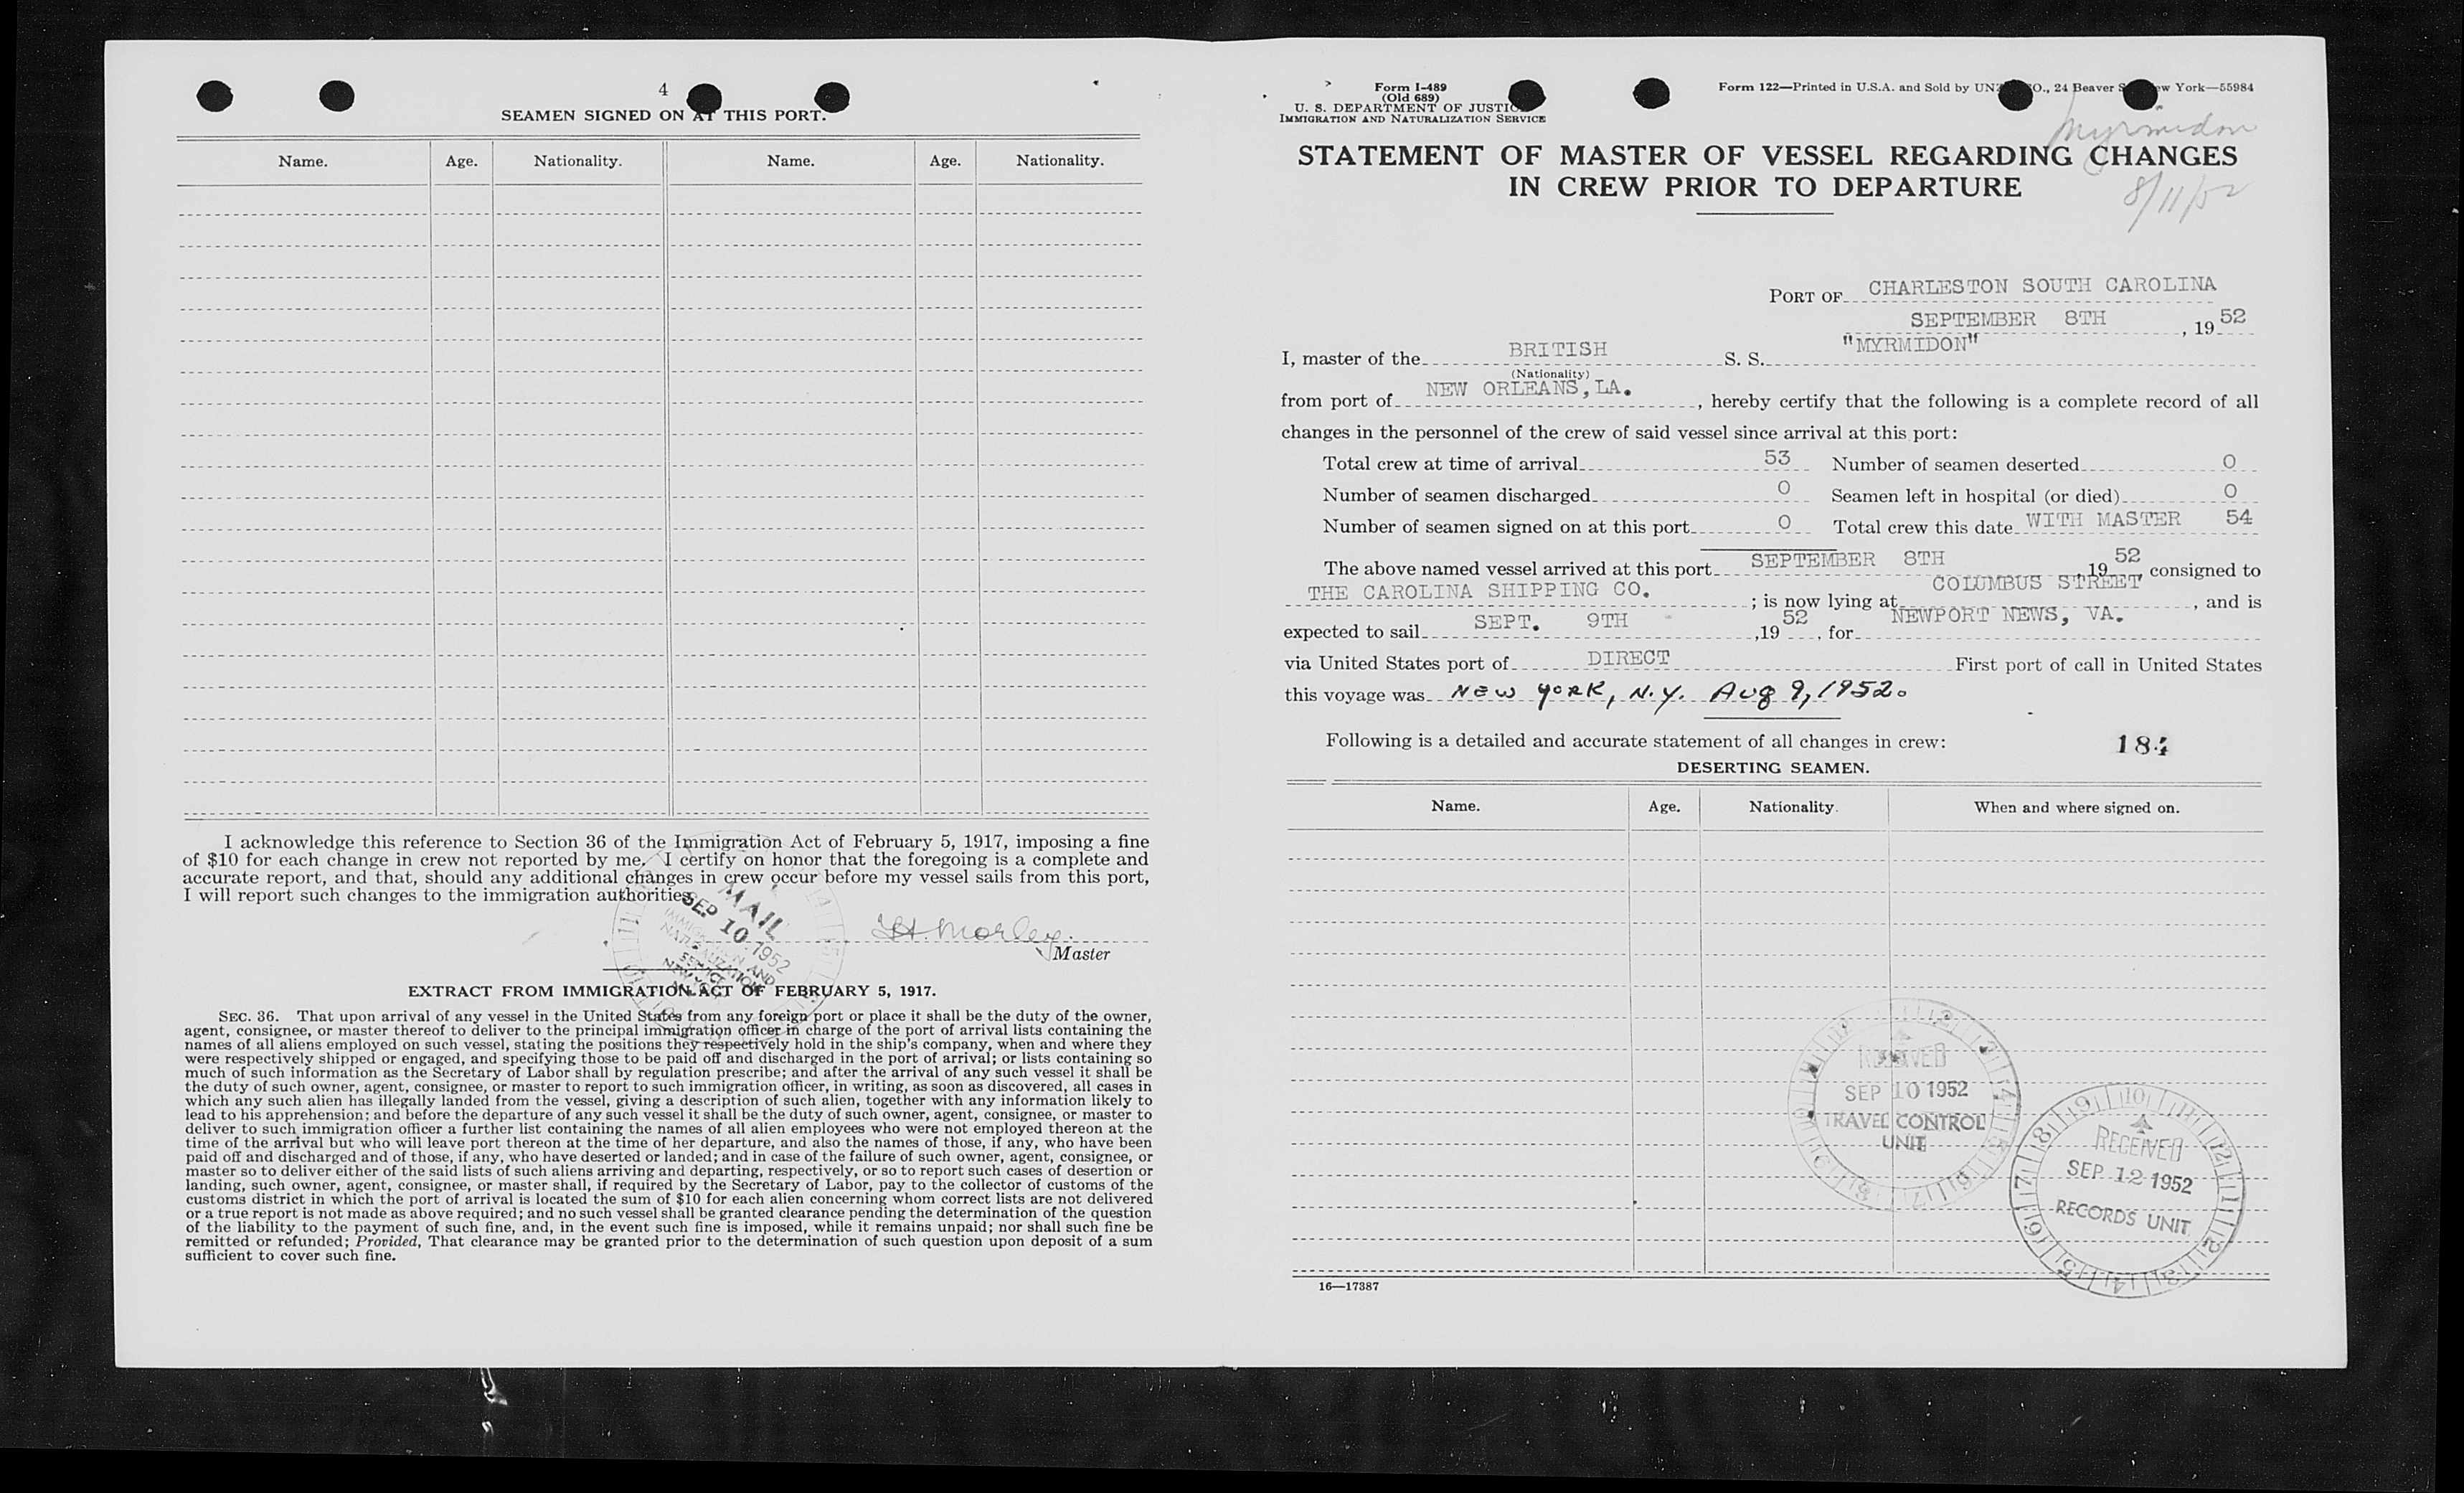 4
SEAMEN SIGNED ON AT THIS PORT.
Name. Age. Nationality. Name. Age. Nationality.
I acknowledge this reference to Section 36 of the Immigration Act of February 5, 1917, imposing a fine
of $10 for each change in crew not reported by me. I certify on honor that the foregoing is a complete and
accurate report, and that, should any additional changes in crew occur before my vessel sails from this port,
I will report such changes to the immigration authorities
MAIL
SEP 10 1952
IMMIGRATION AND
NATURALIZATION
SERVICE
NEW YORK
H. Morley
Master
EXTRACT FROM IMMIGRATION ACT OF FEBRUARY 5, 1917.
SEC. 36. That upon arrival of any vessel in the United States from any foreign port or place it shall be the duty of the owner,
agent, consignee, or master thereof to deliver to the principal immigration officer in charge of the port of arrival lists containing the
names of all aliens employed on such vessel, stating the positions they respectively hold in the ship's company, when and where they
were respectively shipped or engaged, and specifying those to be paid off and discharged in the port of arrival; or lists containing so
much of such information as the Secretary of Labor shall by regulation prescribe; and after the arrival of any such vessel it shall be
the duty of such owner, agent, consignee, or master to report to such immigration officer, in writing, as soon as discovered, all cases in
which any such alien has illegally landed from the vessel, giving a description of such alien, together with any information likely to
lead to his apprehension; and before the departure of any such vessel it shall be the duty of such owner, agent, consignee, or master to
deliver to such immigration officer a further list containing the names of all alien employees who were not employed thereon at the
time of the arrival but who will leave port thereon at the time of her departure, and also the names of those, if any, who have been
paid off and discharged and of those, if any, who have deserted or landed; and in case of the failure of such owner, agent, consignee, or
master so to deliver either of the said lists of such aliens arriving and departing, respectively, or so to report such cases of desertion or
landing, such owner, agent, consignee, or master shall, if required by the Secretary of Labor, pay to the collector of customs of the
customs district in which the port of arrival is located the sum of $10 for each alien concerning whom correct lists are not delivered
or a true report is not made as above required; and no such vessel shall be granted clearance pending the determination of the question
of the liability to the payment of such fine, and, in the event such fine is imposed, while it remains unpaid; nor shall such fine be
remitted or refunded; Provided, That clearance may be granted prior to the determination of such question upon deposit of a sum
sufficient to cover such fine.
Form I-489
(Old 689)
U. S. DEPARTMENT OF JUSTIC
IMMIGRATION AND NATURALIZATION SERVICE
Form 122—Printed in U.S.A. and Sold by UN O., 24 Beaver S ew York—55984
Myrmidon
8/11/52
STATEMENT OF MASTER OF VESSEL REGARDING CHANGES
IN CREW PRIOR TO DEPARTURE
PORT OF CHARLESTON SOUTH CAROLINA
SEPTEMBER 8TH, 1952
I, master of the BRITISH S. S. "MYRMIDON"
(Nationality)
from port of NEW ORLEANS, LA., hereby certify that the following is a complete record of all
changes in the personnel of the crew of said vessel since arrival at this port:
Total crew at time of arrival 53 Number of seamen deserted 0
Number of seamen discharged 0 Seamen left in hospital (or died) 0
Number of seamen signed on at this port 0 Total crew this date WITH MASTER 54
The above named vessel arrived at this port SEPTEMBER 8TH 1952 consigned to
THE CAROLINA SHIPPING CO.; is now lying at COLUMBUS STREET, and is
expected to sail SEPT. 9TH, 1952, for NEWPORT NEWS, VA.
via United States port of DIRECT First port of call in United States
this voyage was NEW YORK, N.Y. AUG 9, 1952.
Following is a detailed and accurate statement of all changes in crew:
DESERTING SEAMEN.
Name. Age. Nationality. When and where signed on.
RECEIVED
SEP 10 1952
TRAVEL CONTROL
UNIT
RECEIVED
SEP 12 1952
RECORDS UNIT
16—17387